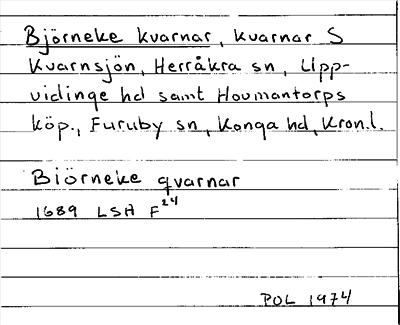 Björneke kvarnar, kvarnar S
Kvarnsjön, Herråkra sn, Upp-
vidinge hd samt Hovmantorps
köp., Furuby sn, Konga hd, Kron.l.
Biörneke qvarnar
1689 LSH F24
POL 1974